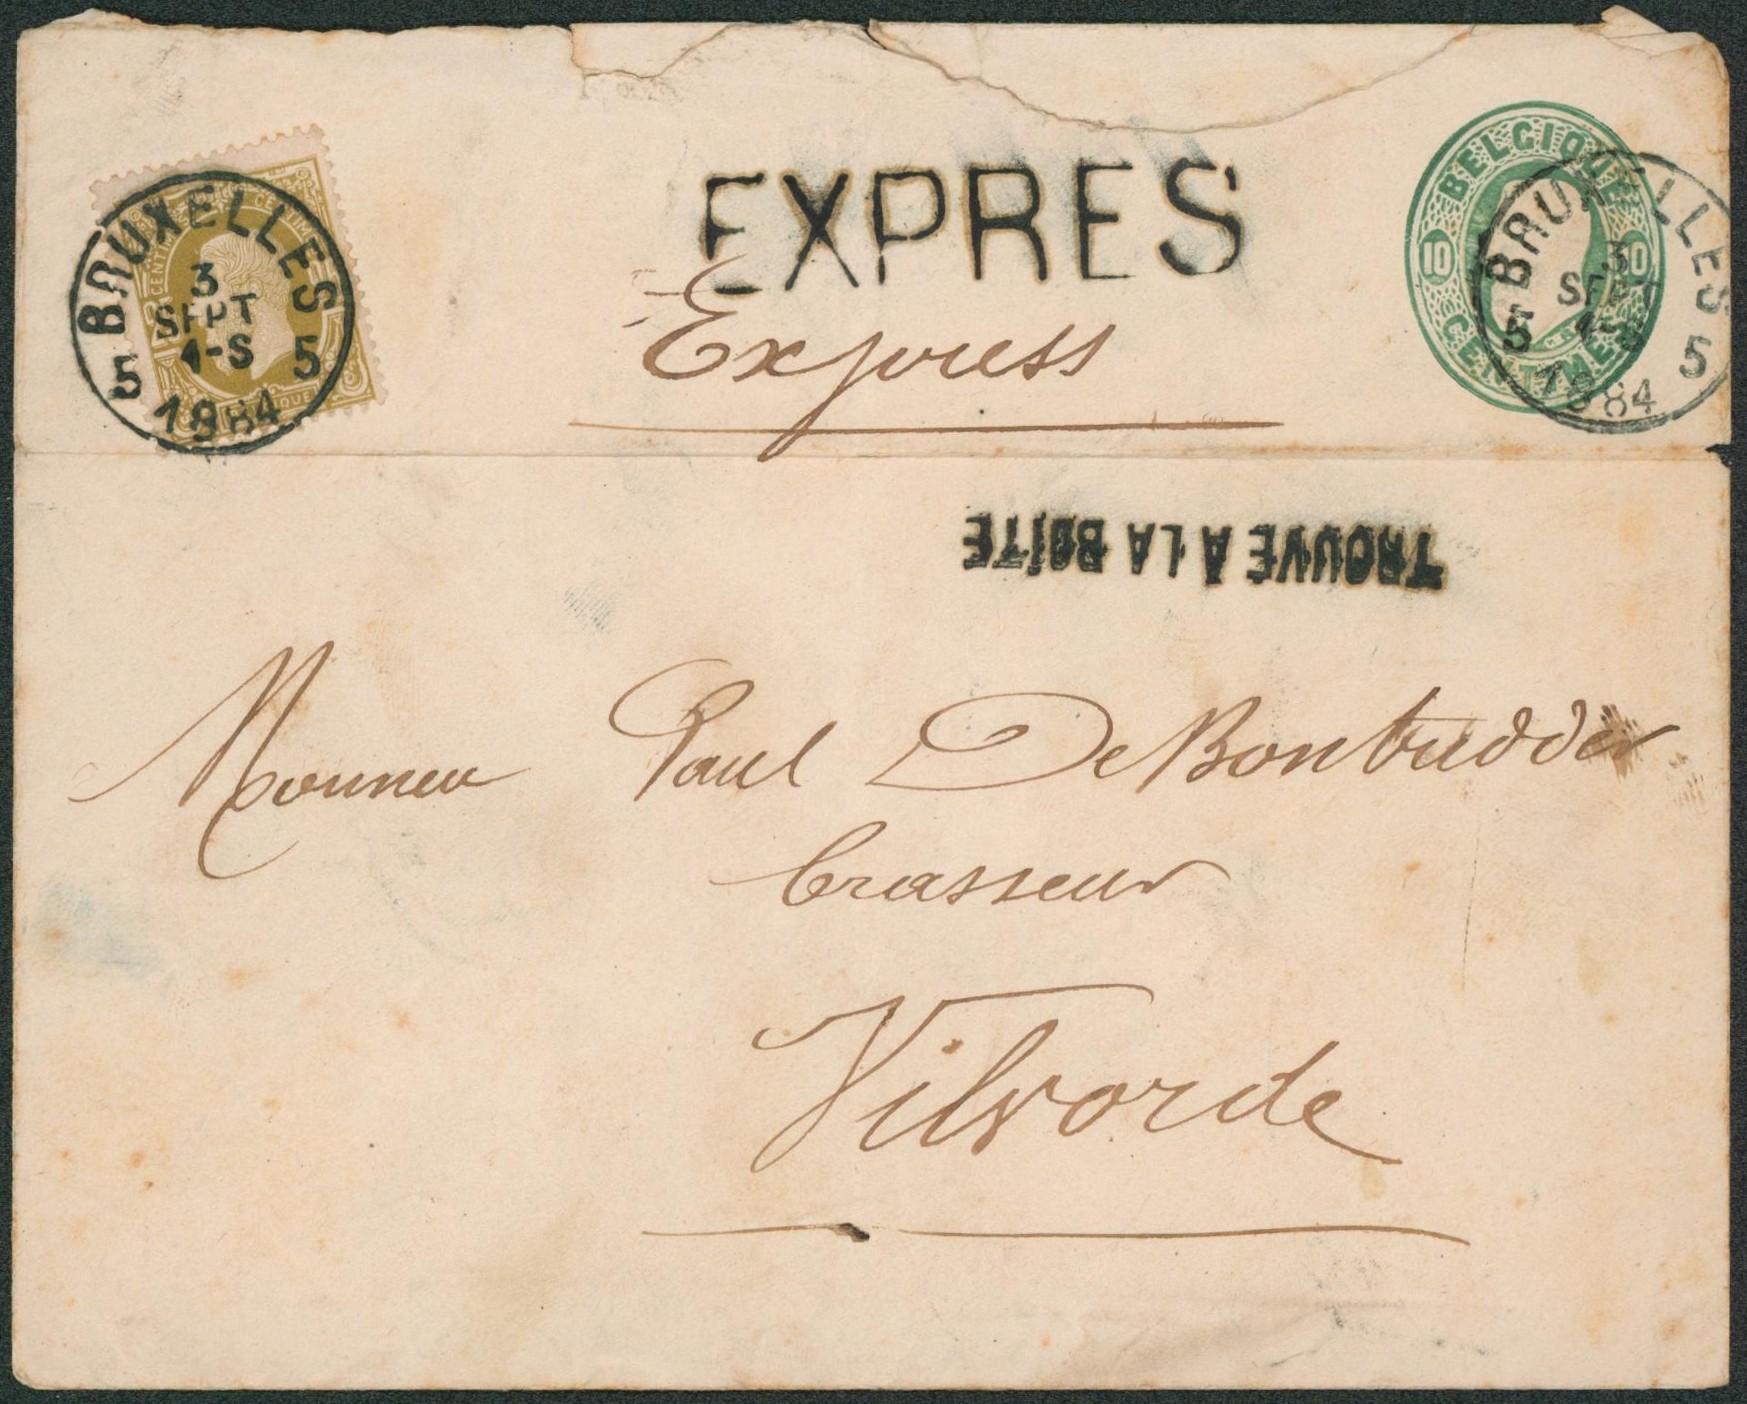 BRUXELLES
3
SEPT
1-S
5 5
1884
CENTIMES
EXPRES
Express
BELGIQUE
10 10
CENTIMES
BRUXELLES
3
SEPT
1-S
5 5
1884
TROUVÉ À LA BOÎTE
Monsieur Paul De Bontridder
brasseur
Vilvorde